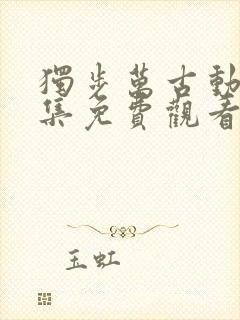 獨步萬古動
集免費觀看
玉虹